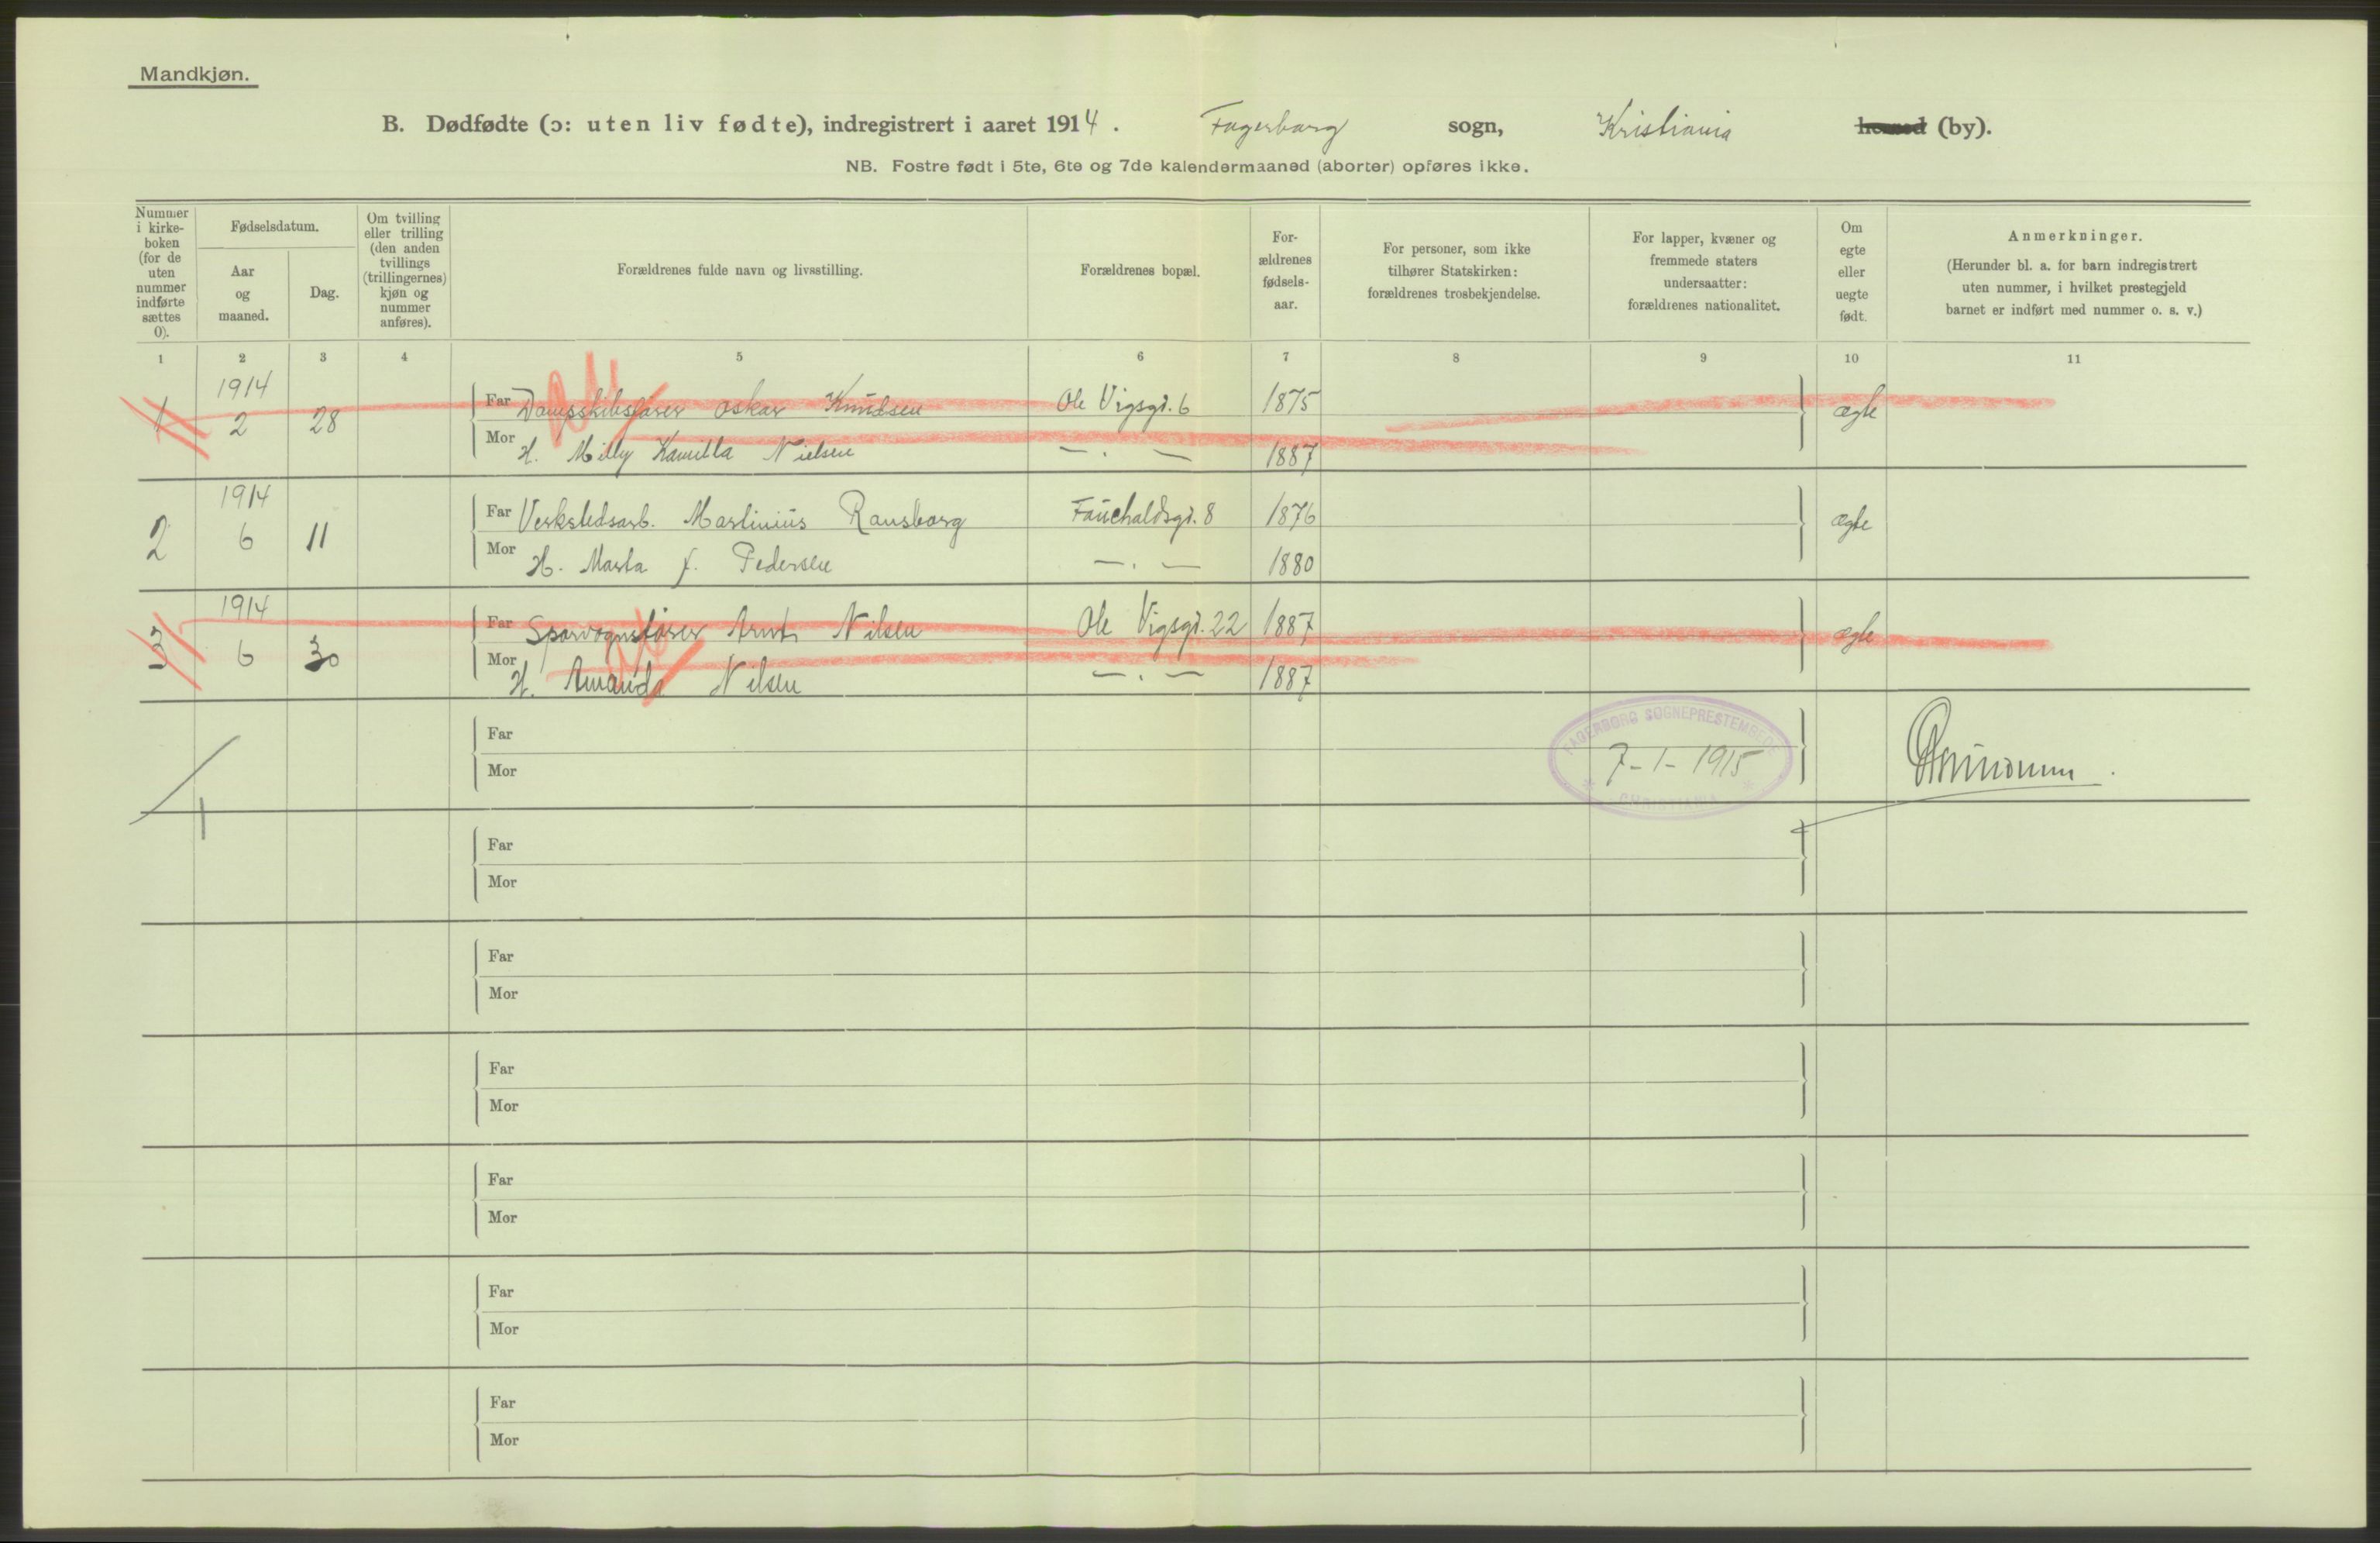 Mandkjøn.
B. Dødfødte (ɔ: uten liv fødte), indregistrert i aaret 1914. Fagerborg sogn, Kristiania herred (by).
NB. Fostre født i 5te, 6te og 7de kalendermaaned (aborter) opføres ikke.
Nummer i kirke-boken (for de uten nummer indførte sættes 0).
Fødselsdatum.
Aar og maaned.
Dag.
Om tvilling eller trilling (den anden tvillings (trillingernes) kjøn og nummer anføres).
Forældrenes fulde navn og livsstilling.
Forældrenes bopæl.
For-ældrenes fødsels-aar.
For personer, som ikke tilhører Statskirken: forældrenes trosbekjendelse.
For lapper, kvæner og fremmede staters undersaatter: forældrenes nationalitet.
Om egte eller uegte født.
Anmerkninger.
(Herunder bl. a. for barn indregistrert uten nummer, i hvilket prestegjeld barnet er indført med nummer o. s. v.)
1 2 3 4 5 6 7 8 9 10 11
1914
1 2 28 Far Dampskibsfører Oskar Knudsen Ole Vigsgd. 6 1875 ægte
Mor H. Milly Kamilla Nielsen — . — 1887
1914
2 6 11 Far Verkstedsarb. Martinius Ransborg Fauchaldsgd. 8 1876 ægte
Mor H. Marta J. Pedersen — . — 1880
1914
3 6 30 Far Sporvognsfører Arnt Nilsen Ole Vigsgd. 22 1887 ægte
Mor H. Amanda Nilsen — . — 1887
Far
Mor
FAGERBORG SOGNEPRESTEMBEDE
7-1-1915
CHRISTIANIA
Far
Mor
Far
Mor
Far
Mor
Far
Mor
Far
Mor
Far
Mor